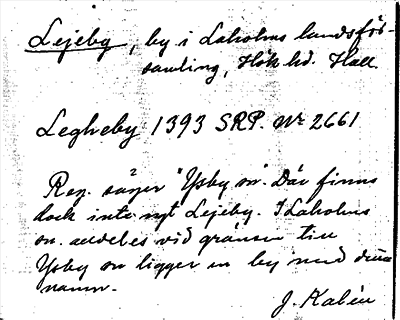 Lejeby, by i Laholms landsför-
samling, Höks hd. Hall.
Legheby 1393 SRP. Nr 2661
Reg. säger "Ysby sn". Där finns
dock inte nyt Lejeby. I Laholms
sn. alldeles vid gränsen till
Ysby sn ligger en by med detta
namn.
J. Kalén